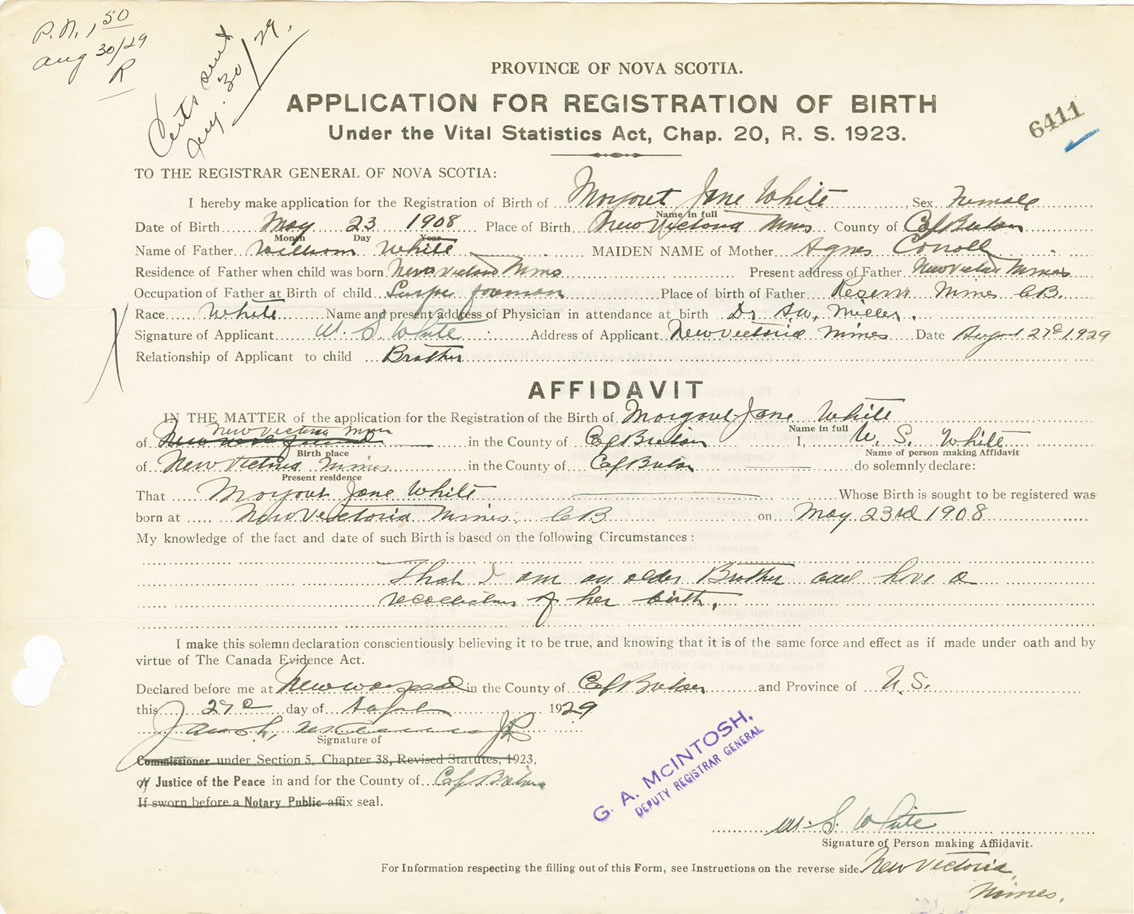 P.N. 1.50
Aug 30/29
R
Certs sent
Aug. 30/29.
PROVINCE OF NOVA SCOTIA.
APPLICATION FOR REGISTRATION OF BIRTH
Under the Vital Statistics Act, Chap. 20, R. S. 1923.
6411
TO THE REGISTRAR GENERAL OF NOVA SCOTIA:
I hereby make application for the Registration of Birth of Margaret Jane White Sex Female
Name in full
Date of Birth May 23 1908 Place of Birth New Victoria Mines County of Cape Breton
Month Day Year
Name of Father William White MAIDEN NAME of Mother Agnes
Residence of Father when child was born New Victoria Mines Present address of Father New Victoria Mines
Occupation of Father at Birth of child foreman Place of birth of Father Reserve Mines CB.
Race White Name and present address of Physician in attendance at birth Dr Miller.
Signature of Applicant W. S. White Address of Applicant New Victoria Mines Date August 27th 1929
Relationship of Applicant to child Brother
AFFIDAVIT
IN THE MATTER of the application for the Registration of the Birth of Margaret Jane White
Name in full
of New Victoria Mines in the County of Cape Breton I, W. S. White
Birth place Name of person making Affidavit
of New Victoria Mines in the County of Cape Breton do solemnly declare:
Present residence
That Margaret Jane White Whose Birth is sought to be registered was
born at New Victoria Mines CB on May 23rd 1908
My knowledge of the fact and date of such Birth is based on the following Circumstances:
That I am an older Brother and have a
recollection of her birth.
I make this solemn declaration conscientiously believing it to be true, and knowing that it is of the same force and effect as if made under oath and by
virtue of The Canada Evidence Act.
Declared before me at New Waterford in the County of Cape Breton and Province of N.S.
this 27th day of 1929
JP
Signature of
Commissioner under Section 5, Chapter 38, Revised Statutes, 1923,
or Justice of the Peace in and for the County of Cape Breton
If sworn before a Notary Public affix seal.
G. A. McINTOSH,
DEPUTY REGISTRAR GENERAL
W. S. White
Signature of Person making Affidavit.
For Information respecting the filling out of this Form, see Instructions on the reverse side New Victoria
Mines.